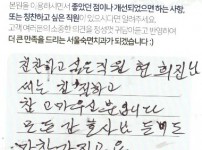 본원을 이용하시면서 좋았던 점이나 개선되었으면 하는 사항,
또는 칭찬하고 싶은 직원이 있으시다면 알려주세요.
고객 여러분의 소중한 의견을 정성껏 귀담아듣고 반영하여
더 큰 만족을 드리는 서울숙면치과가 되겠습니다 :)
칭찬하고싶은직원 현 희진님
씨는 친절하고
참 고마우신 분입니다
모든 간호사님들도